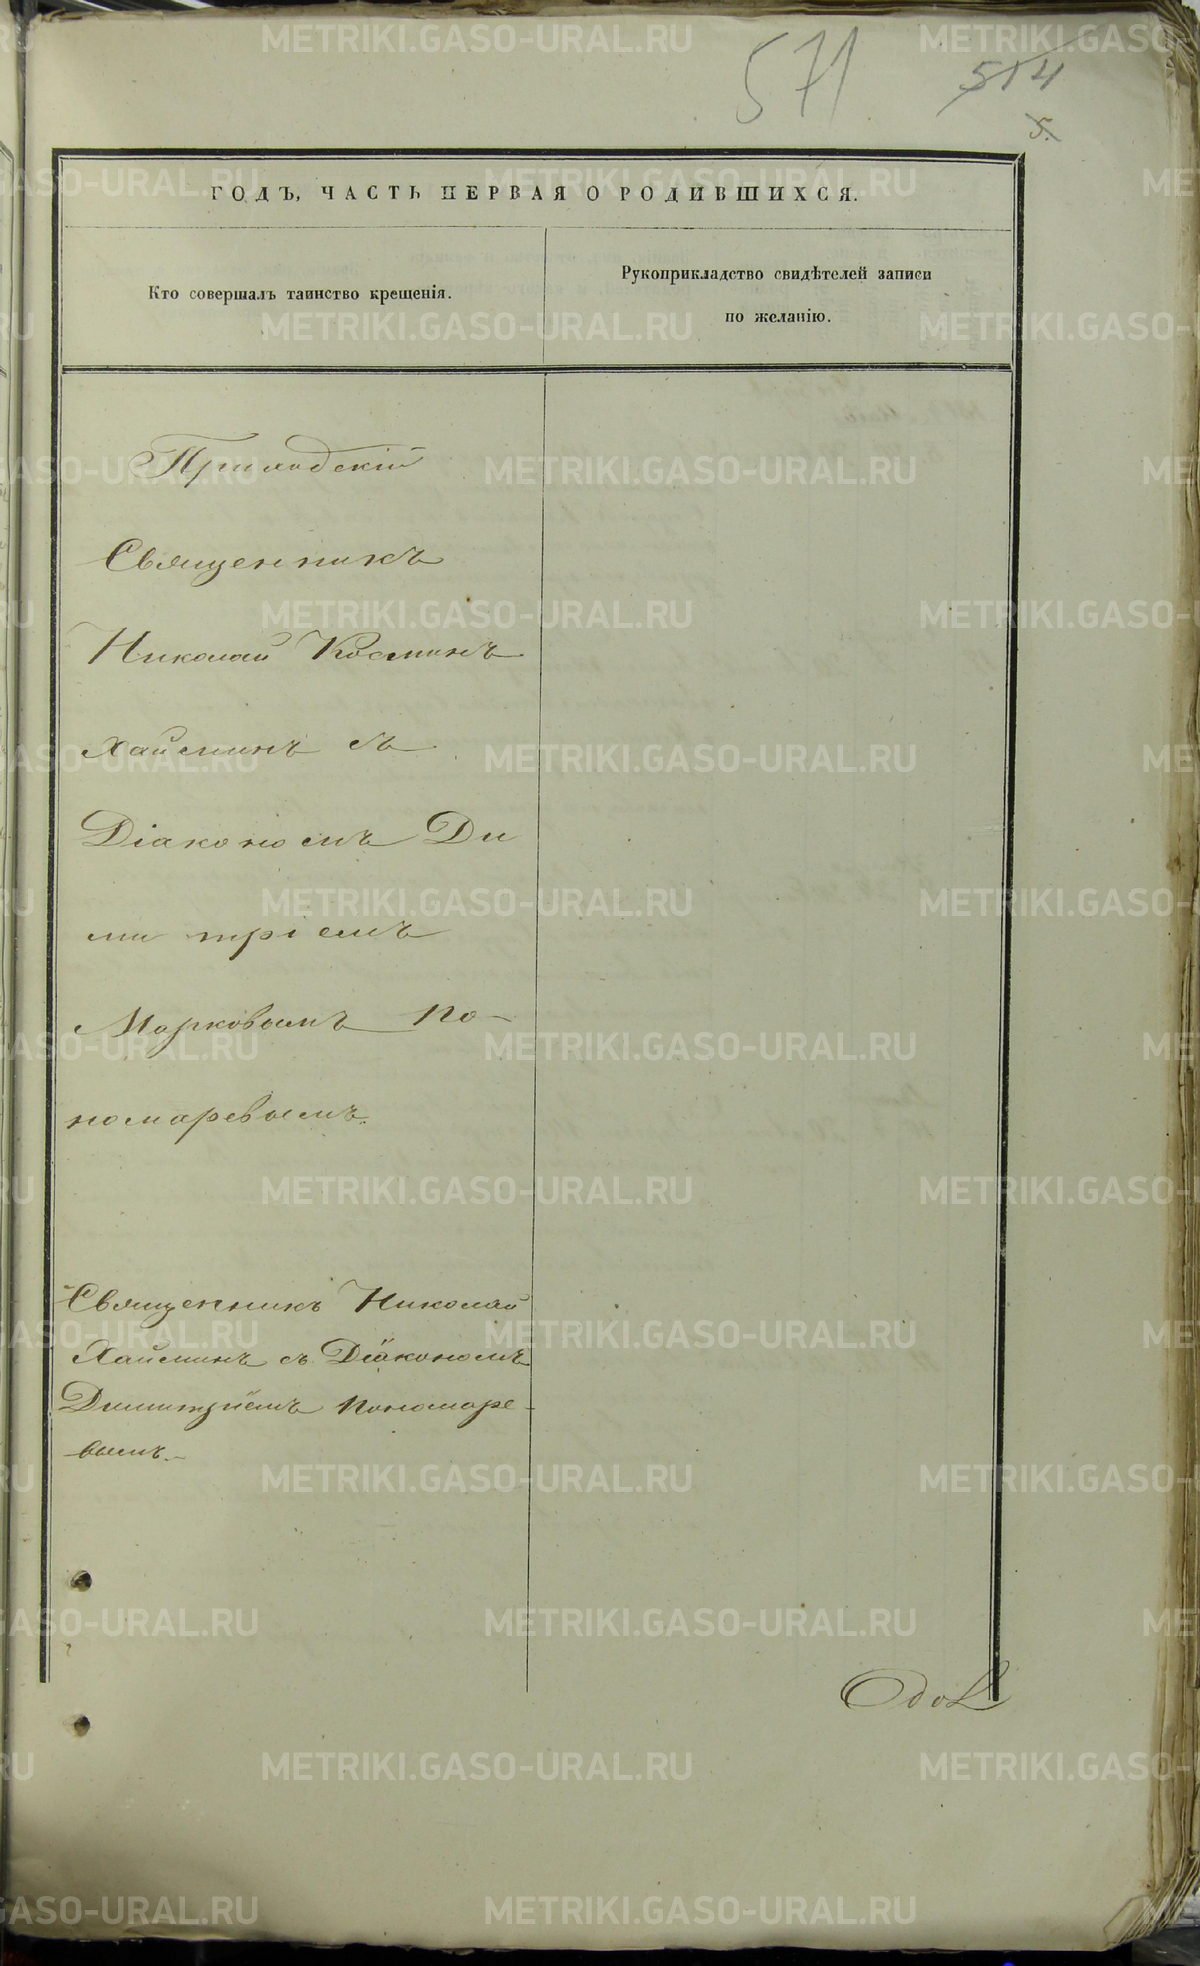 571
514
5.
ГОДЪ, ЧАСТЬ ПЕРВАЯ О РОДИВШИХСЯ.
Кто совершалъ таинство крещенія.
Рукоприкладство свидѣтелей записи
по желанію.
Приходскій
Священникъ
Николай Косминъ
Хайминъ съ
Діакономъ Ди
митріемъ
Марковымъ По-
номаревымъ.
Священникъ Николай
Хайминъ съ Діакономъ
Димитріемъ Пономаре-
вымъ.
METRIKI.GASO-URAL.RU